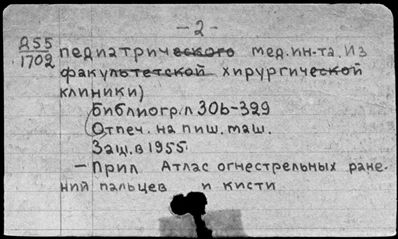 - 2 -
Д55 педиатрического мед.ин-та. Из
1702 факультетской хирургической
клиники)
Библиогр. л 306-329
Отпеч. на пиш. маш.
Защ. в 1955.
- Прил. Атлас огнестрельных ране-
ний пальцев и кисти